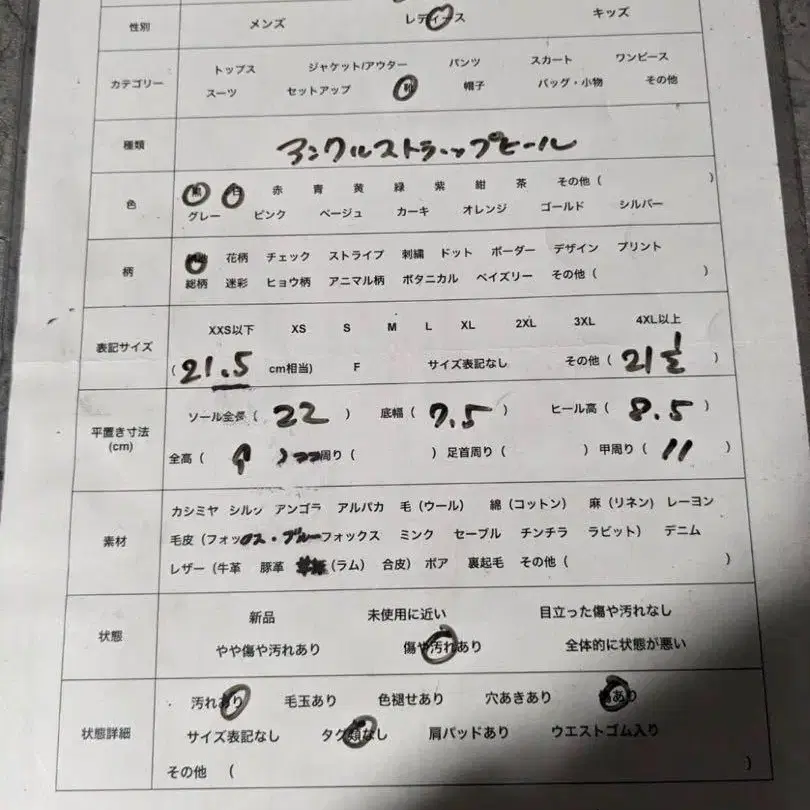 性別 メンズ レディース キッズ
カテゴリー
トップス ジャケット/アウター パンツ スカート ワンピース
スーツ セットアップ 靴 帽子 バッグ・小物 その他
種類 アンクルストラップヒール
色
黒 白 赤 青 黄 緑 紫 紺 茶 その他 ( )
グレー ピンク ベージュ カーキ オレンジ ゴールド シルバー
柄
花柄 チェック ストライプ 刺繍 ドット ボーダー デザイン プリント
総柄 迷彩 ヒョウ柄 アニマル柄 ボタニカル ペイズリー その他 ( )
表記サイズ
XXS以下 XS S M L XL 2XL 3XL 4XL以上
( 21.5 cm相当) F サイズ表記なし その他 ( 21 1/2 )
平置き寸法
(cm)
ソール全長 ( 22 ) 底幅 ( 7.5 ) ヒール高 ( 8.5 )
全高 ( 9 ) 周り ( ) 足首周り ( ) 甲周り ( 11 )
素材
カシミヤ シルク アンゴラ アルパカ 毛 (ウール) 綿 (コットン) 麻 (リネン) レーヨン
毛皮 (フォックス・ブルーフォックス ミンク セーブル チンチラ ラビット) デニム
レザー (牛革 豚革 (ラム) 合皮) ボア 裏起毛 その他 ( )
状態
新品 未使用に近い 目立った傷や汚れなし
やや傷や汚れあり 傷や汚れあり 全体的に状態が悪い
状態詳細
汚れあり 毛玉あり 色褪せあり 穴あきあり 傷あり
サイズ表記なし タグ類なし 肩パッドあり ウエストゴム入り
その他 ( )